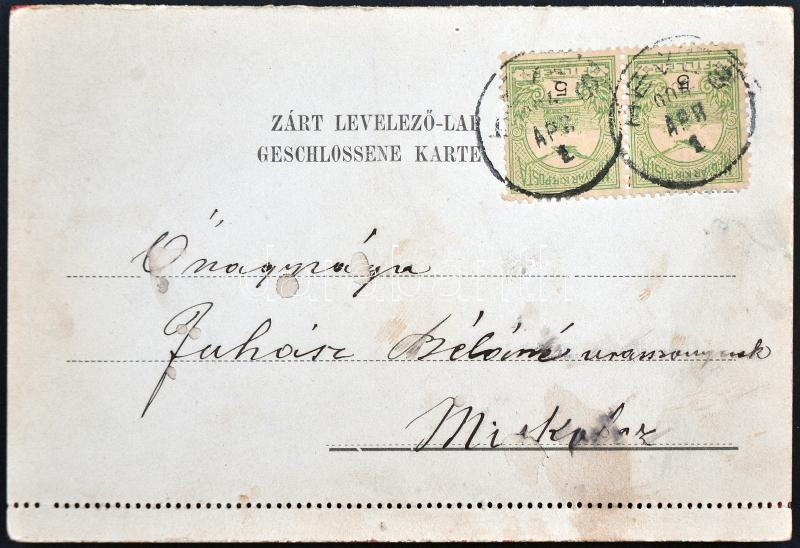 ZÁRT LEVELEZŐ-LAP
GESCHLOSSENE KARTE
5 5
FILLER FILLER
MAGYAR KIR POSTA
APR
1
APR
1
Őnagysága
Juhász Béláné uramonynak
Miskolcz
darabanth